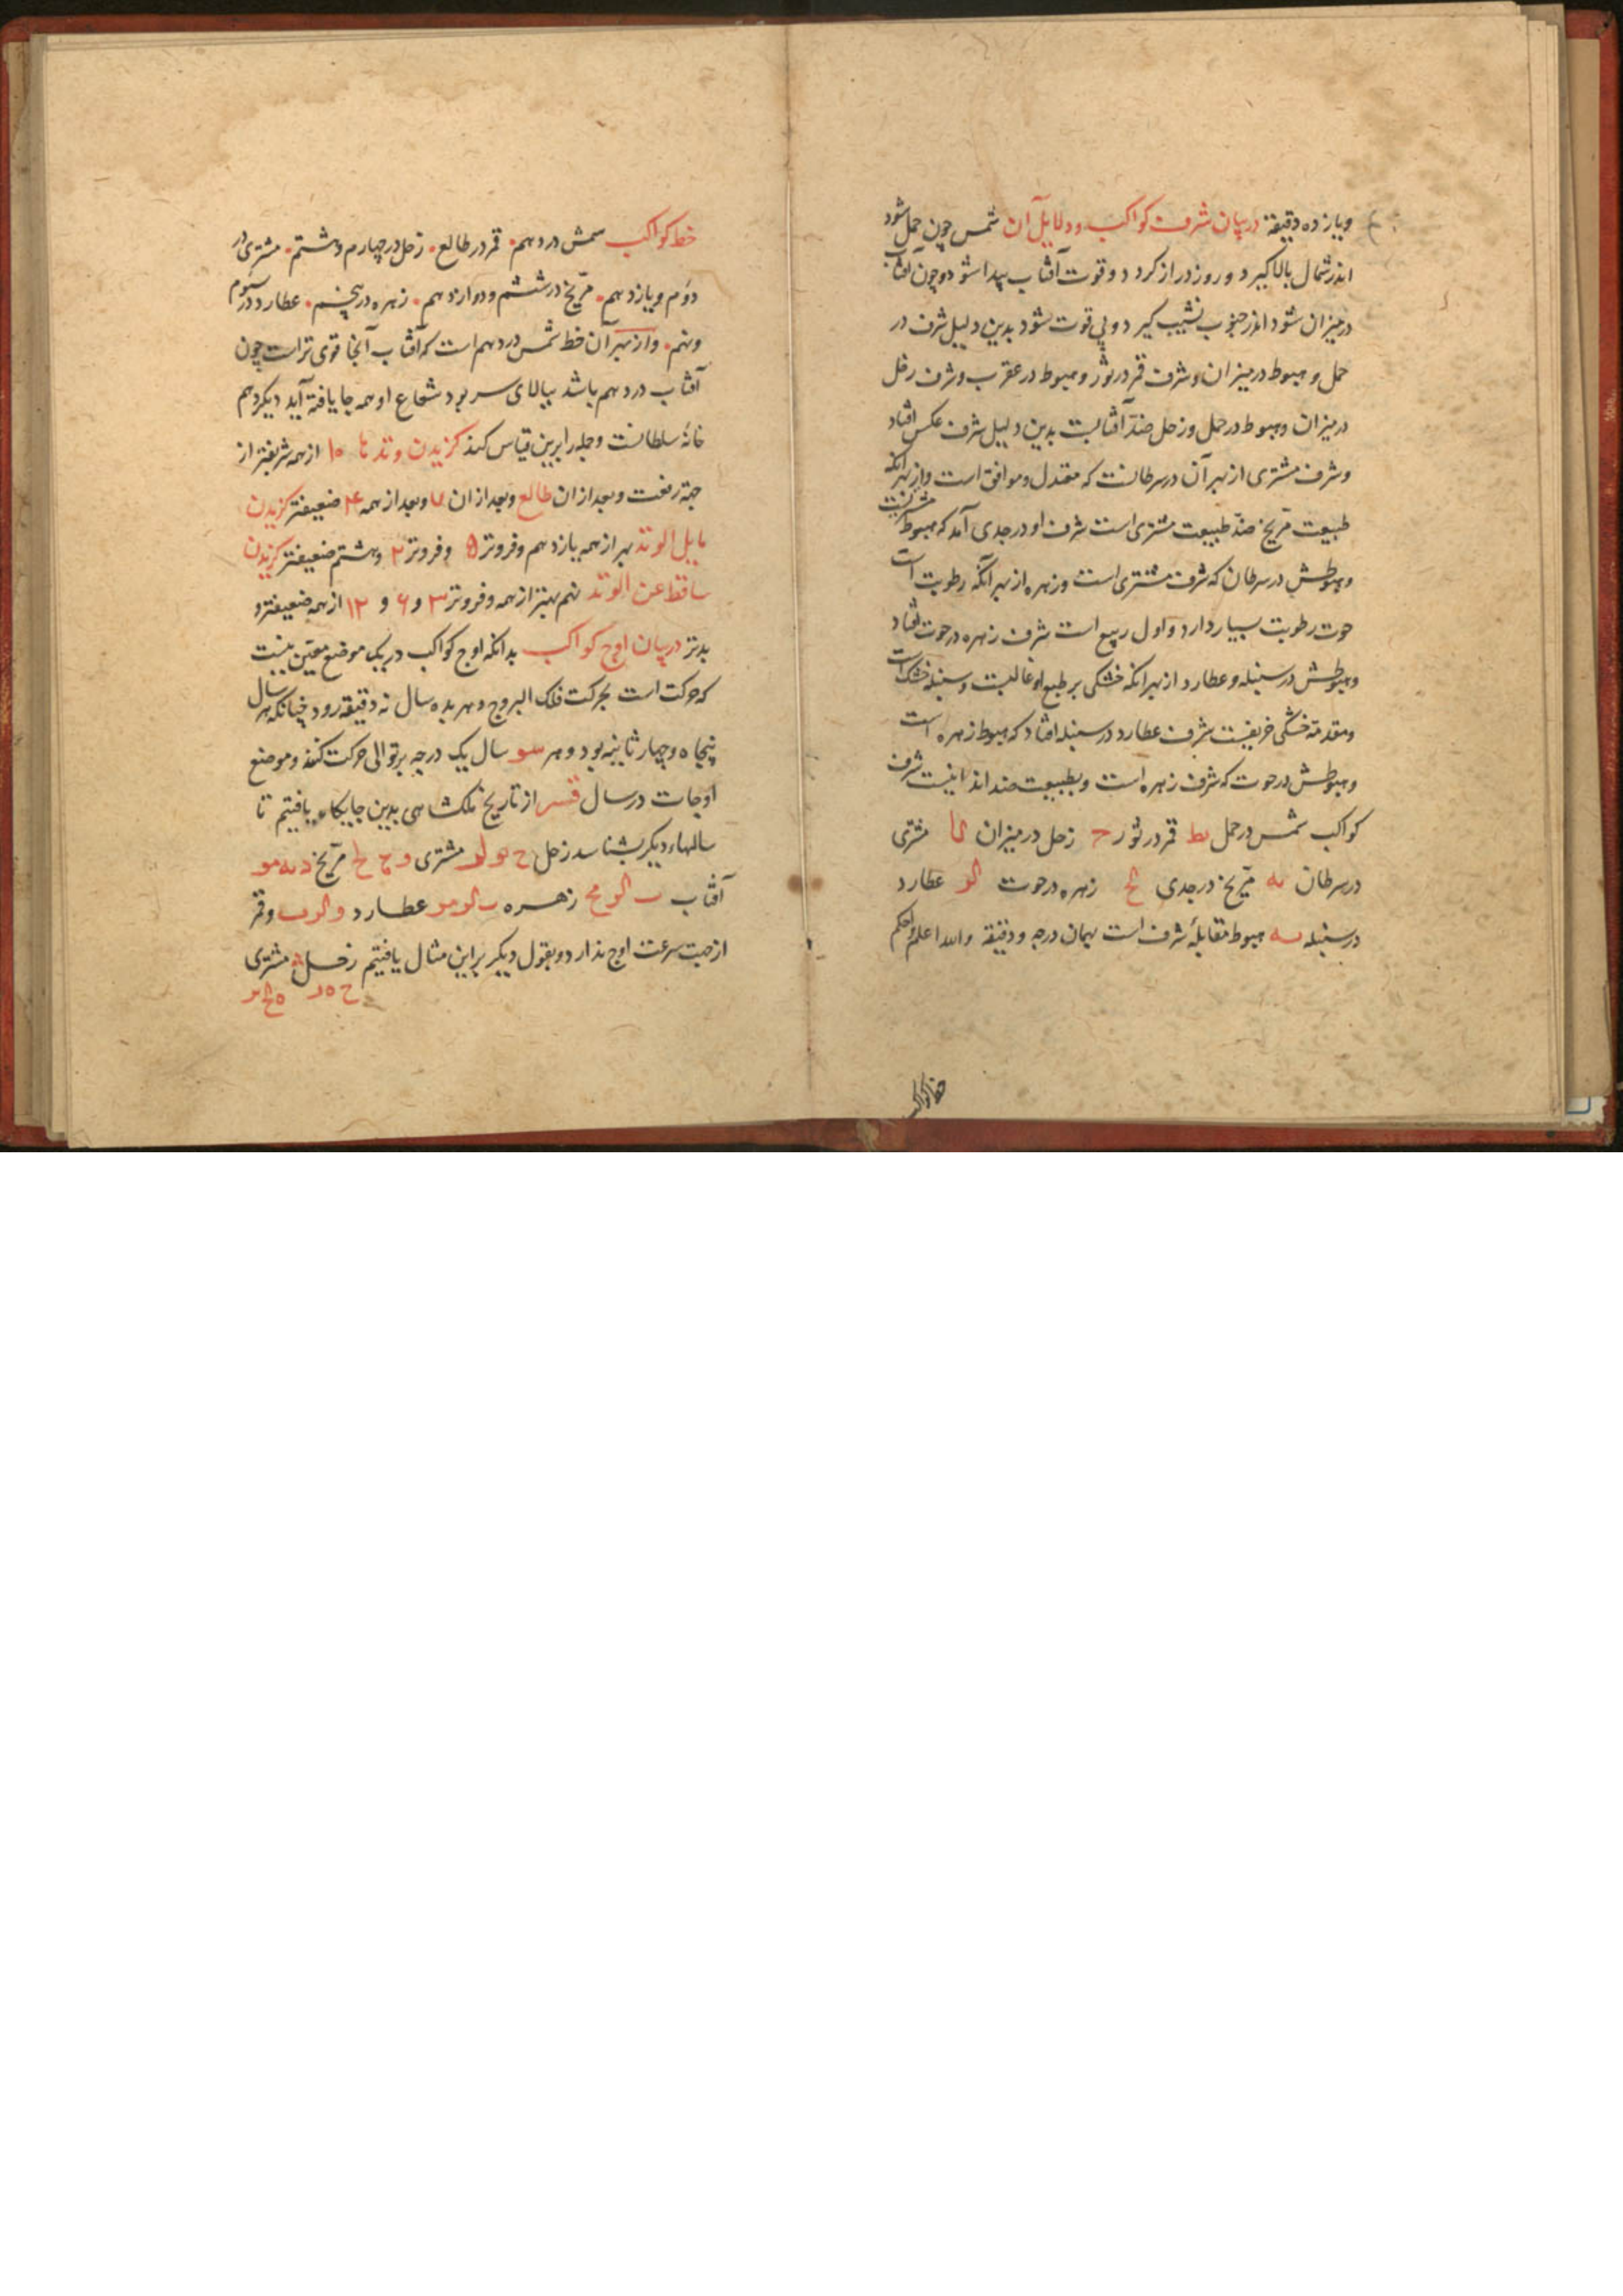 ویازده دقیقه در بیان شرف کواکب و دلایل آن شمس چون حمل شود
اندر شمال بالا گیرد و روز دراز کردد و قوت آفتاب پیدا شود و چون آفتاب
در میزان شود اندر جنوب نشیب گیرد و بی قوت شود بدین دلیل شرف در
حمل و هبوط در میزان و شرف قمر در ثور و هبوط در عقرب و شرف زحل
در میزان و هبوط در حمل و زحل ضد آفتابست بدین دلیل شرف عکس افتاد
و شرف مشتری از بهر آن در سرطانست که معتدل و موافق است و از بهر آنکه
طبیعت مریخ ضد طبیعت مشتری است شرف او در جدی آمد که هبوط مشتریست
و هبوطش در سرطان که شرف مشتری است و زهره از بهر آنکه رطوبت است
حوت رطوبت بسیار دارد و اول ربیع است شرف زهره در حوت افتاد
و هبوطش در سنبله و عطارد از بهر آنکه خشکی بر طبع او غالبست و سنبله خشک است
و مقدمه خشکی خریفست شرف عطارد در سنبله افتاد که هبوط زهره است
و هبوطش در حوت که شرف زهره است و بطبیعت ضد اند اینست شرف
کواکب شمس در حمل یط قمر در ثور ج زحل در میزان کا مشتری
در سرطان یه مریخ در جدی کح زهره در حوت کو عطارد
در سنبله یه هبوط مقابلهٔ شرف است بهمان درجه و دقیقه والله اعلم و احکم
حظ کواکب
حظ کواکب شمس در دهم قمر در طالع زحل در چهارم و هشتم مشتری در
دوم و یازدهم مریخ در ششم و دوازدهم زهره در پنجم عطارد در سوم
و نهم و از بهر آن حظ شمس در دهم است که آفتاب آنجا قوی تر است چون
آفتاب در دهم باشد ببالای سر بود شعاع او همه جا یافته آید دیکر دهم
خانهٔ سلطانست و جمله را برین قیاس کنند کزیدن وتدها ۱۰ از همه شریفتر از
جهة رفعت و بعد از ان طالع و بعد از ان ۷ و بعد از همه ۴ ضعیفتر کزیدن
مایل الوتد بهر از همه یازدهم و فروتر ۵ و فروتر ۲ و هشتم ضعیفتر کزیدن
ساقط عن الوتد نهم بهتر از همه و فروتر ۳ و ۶ و ۱۲ از همه ضعیفتر و
بدتر در بیان اوج کواکب بدانکه اوج کواکب در یک موضع معین نیست
که حرکت است بحرکت فلک البروج و هر بده سال نه دقیقه رود چنانکه هر سال
پنجاه و چهار ثانیه بود و هر سو سال یک درجه بر توالی حرکت کنند و موضع
اوجات در سال قسر از تاریخ ملکشاهی بدین جایکاه یافتیم تا
سالهاء دیکر بشناسد زحل ح یو لو مشتری و ح مریخ د یه مو
آفتاب ب کو مح زهره ب کو مو عطارد و کو ب و قمر
از جهت سرعت اوج ندارد و بقول دیکر براین مثال یافتیم زحل مشتری